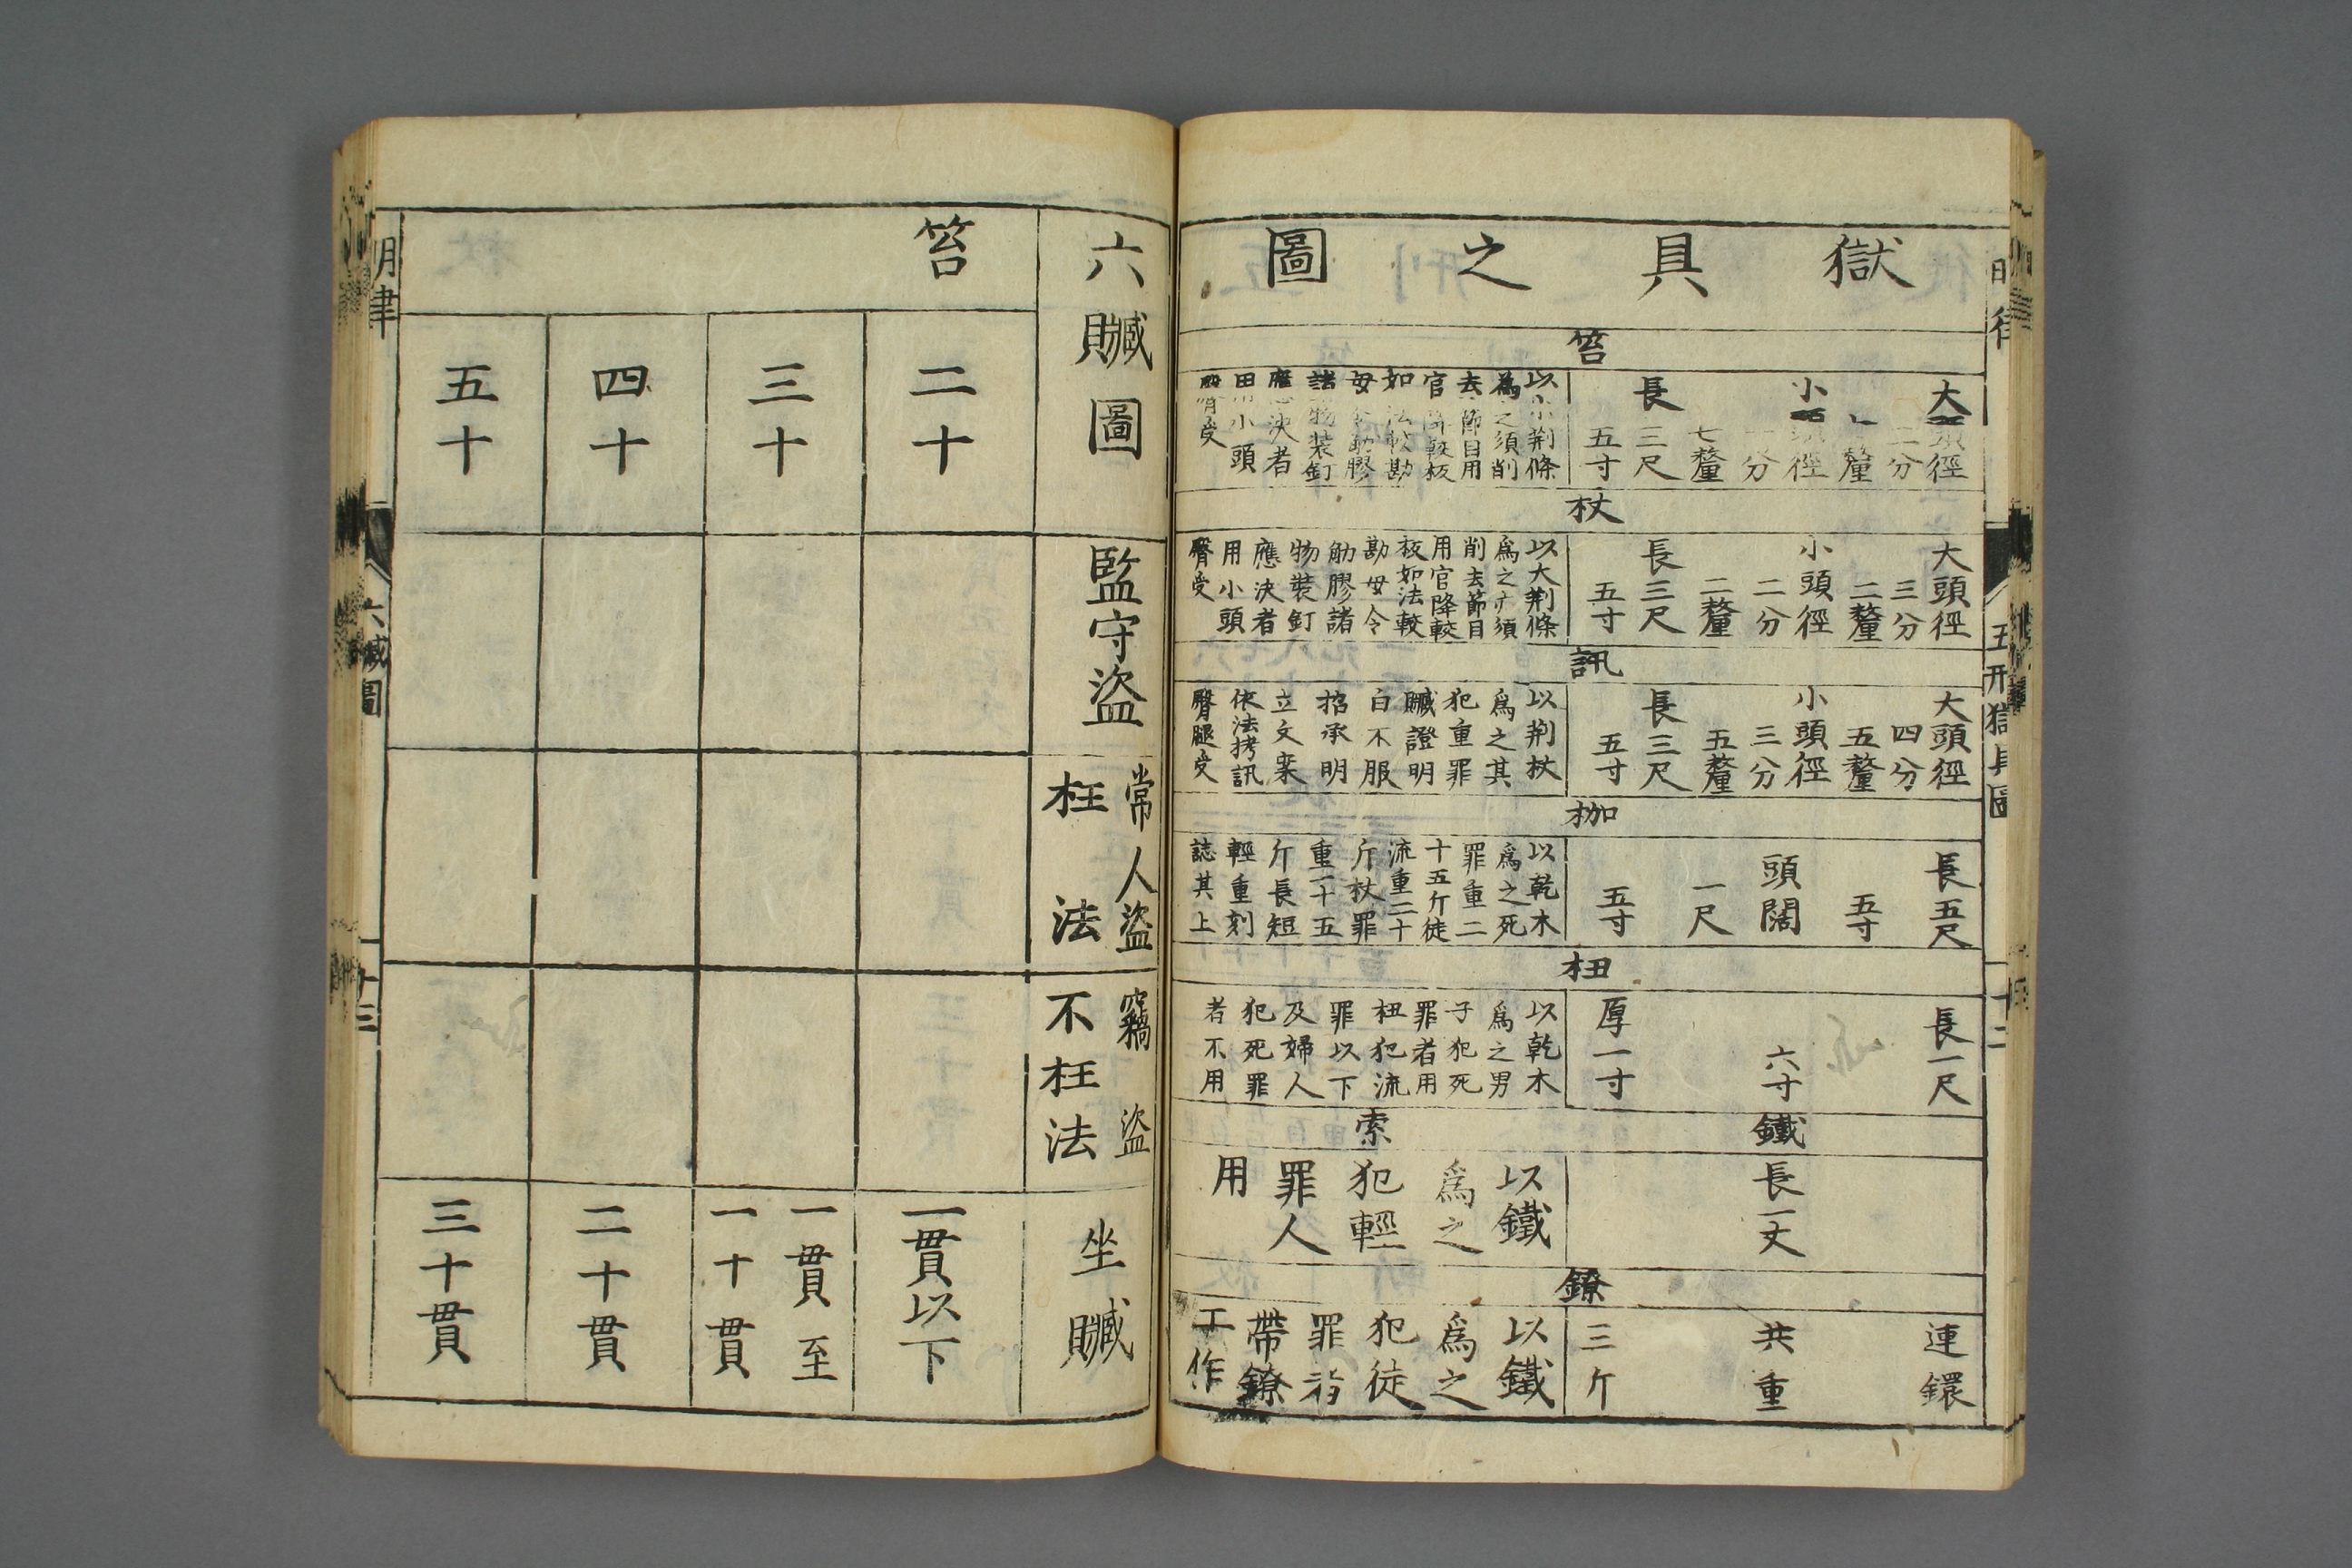 獄具之圖
笞
大頭徑
二分
釐
小頭徑
分
七釐
長三尺
五寸
以小荆條
爲之須削
去節目用
官降較板
如法較勘
毋令觔膠
諸物裝釘
應決者
用小頭
臀受
杖
大頭徑
三分
二釐
小頭徑
二分
二釐
長三尺
五寸
以大荆條
爲之亦須
削去節目
用官降較
板如法較
勘毋令
觔膠諸
物裝釘
應決者
用小頭
臀受
訊
大頭徑
四分
五釐
小頭徑
三分
五釐
長三尺
五寸
以荆杖
爲之其
犯重罪
贓證明
白不服
招承明
立文案
依法拷訊
臀腿受
枷
長五尺
五寸
頭闊
一尺
五寸
以乾木
爲之死
罪重二
十五斤徒
流重二十
斤杖罪
重一十五
斤長短
輕重刻
誌其上
杻
長一尺
六寸
厚一寸
以乾木
爲之男
子犯死
罪者用
杻犯流
罪以下
及婦人
犯死罪
者不用
鐵索
長一丈
以鐵
爲之
犯輕
罪人
用
鐐
連鐶
共重
三斤
以鐵
爲之
犯徒
罪者
帶鐐
工作
五刑獄具圖
十二
六贓圖
監守盜
常人盜
枉法
竊盜
不枉法
坐贓
笞
二十
一貫以下
三十
一貫至
一十貫
四十
二十貫
五十
三十貫
明律
六贓圖
十三